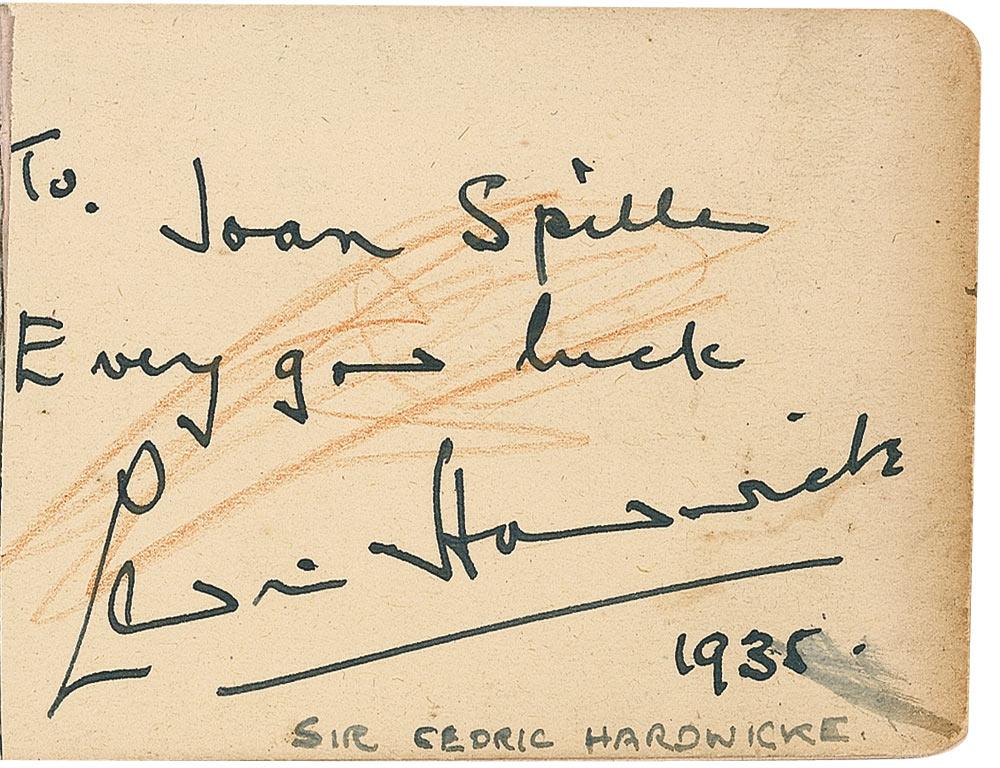 To. Joan Spille
Every good luck
Cedric Hardwicke
1935.
SIR CEDRIC HARDWICKE.